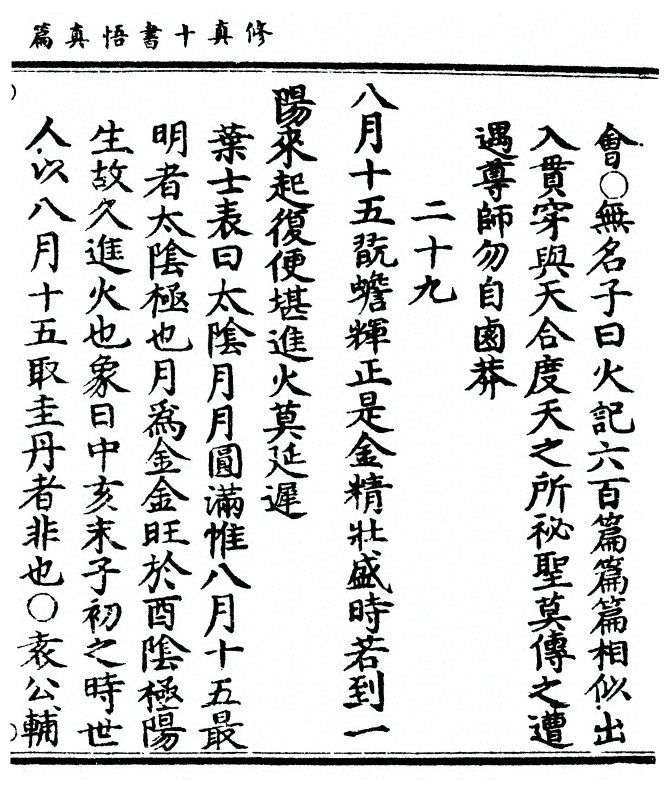 修真十書悟真篇
會○無名子曰火記六百篇篇篇相似出
入貫穿與天合度天之所祕聖莫傳之遭
遇尊師勿自鹵莽
二十九
八月十五翫蟾輝正是金精壯盛時若到一
陽來起復便堪進火莫延遲
葉士表曰太陰月月圓滿惟八月十五最
明者太陰極也月爲金金旺於酉陰極陽
生故久進火也象日中亥末子初之時世
人以八月十五取圭丹者非也○袁公輔